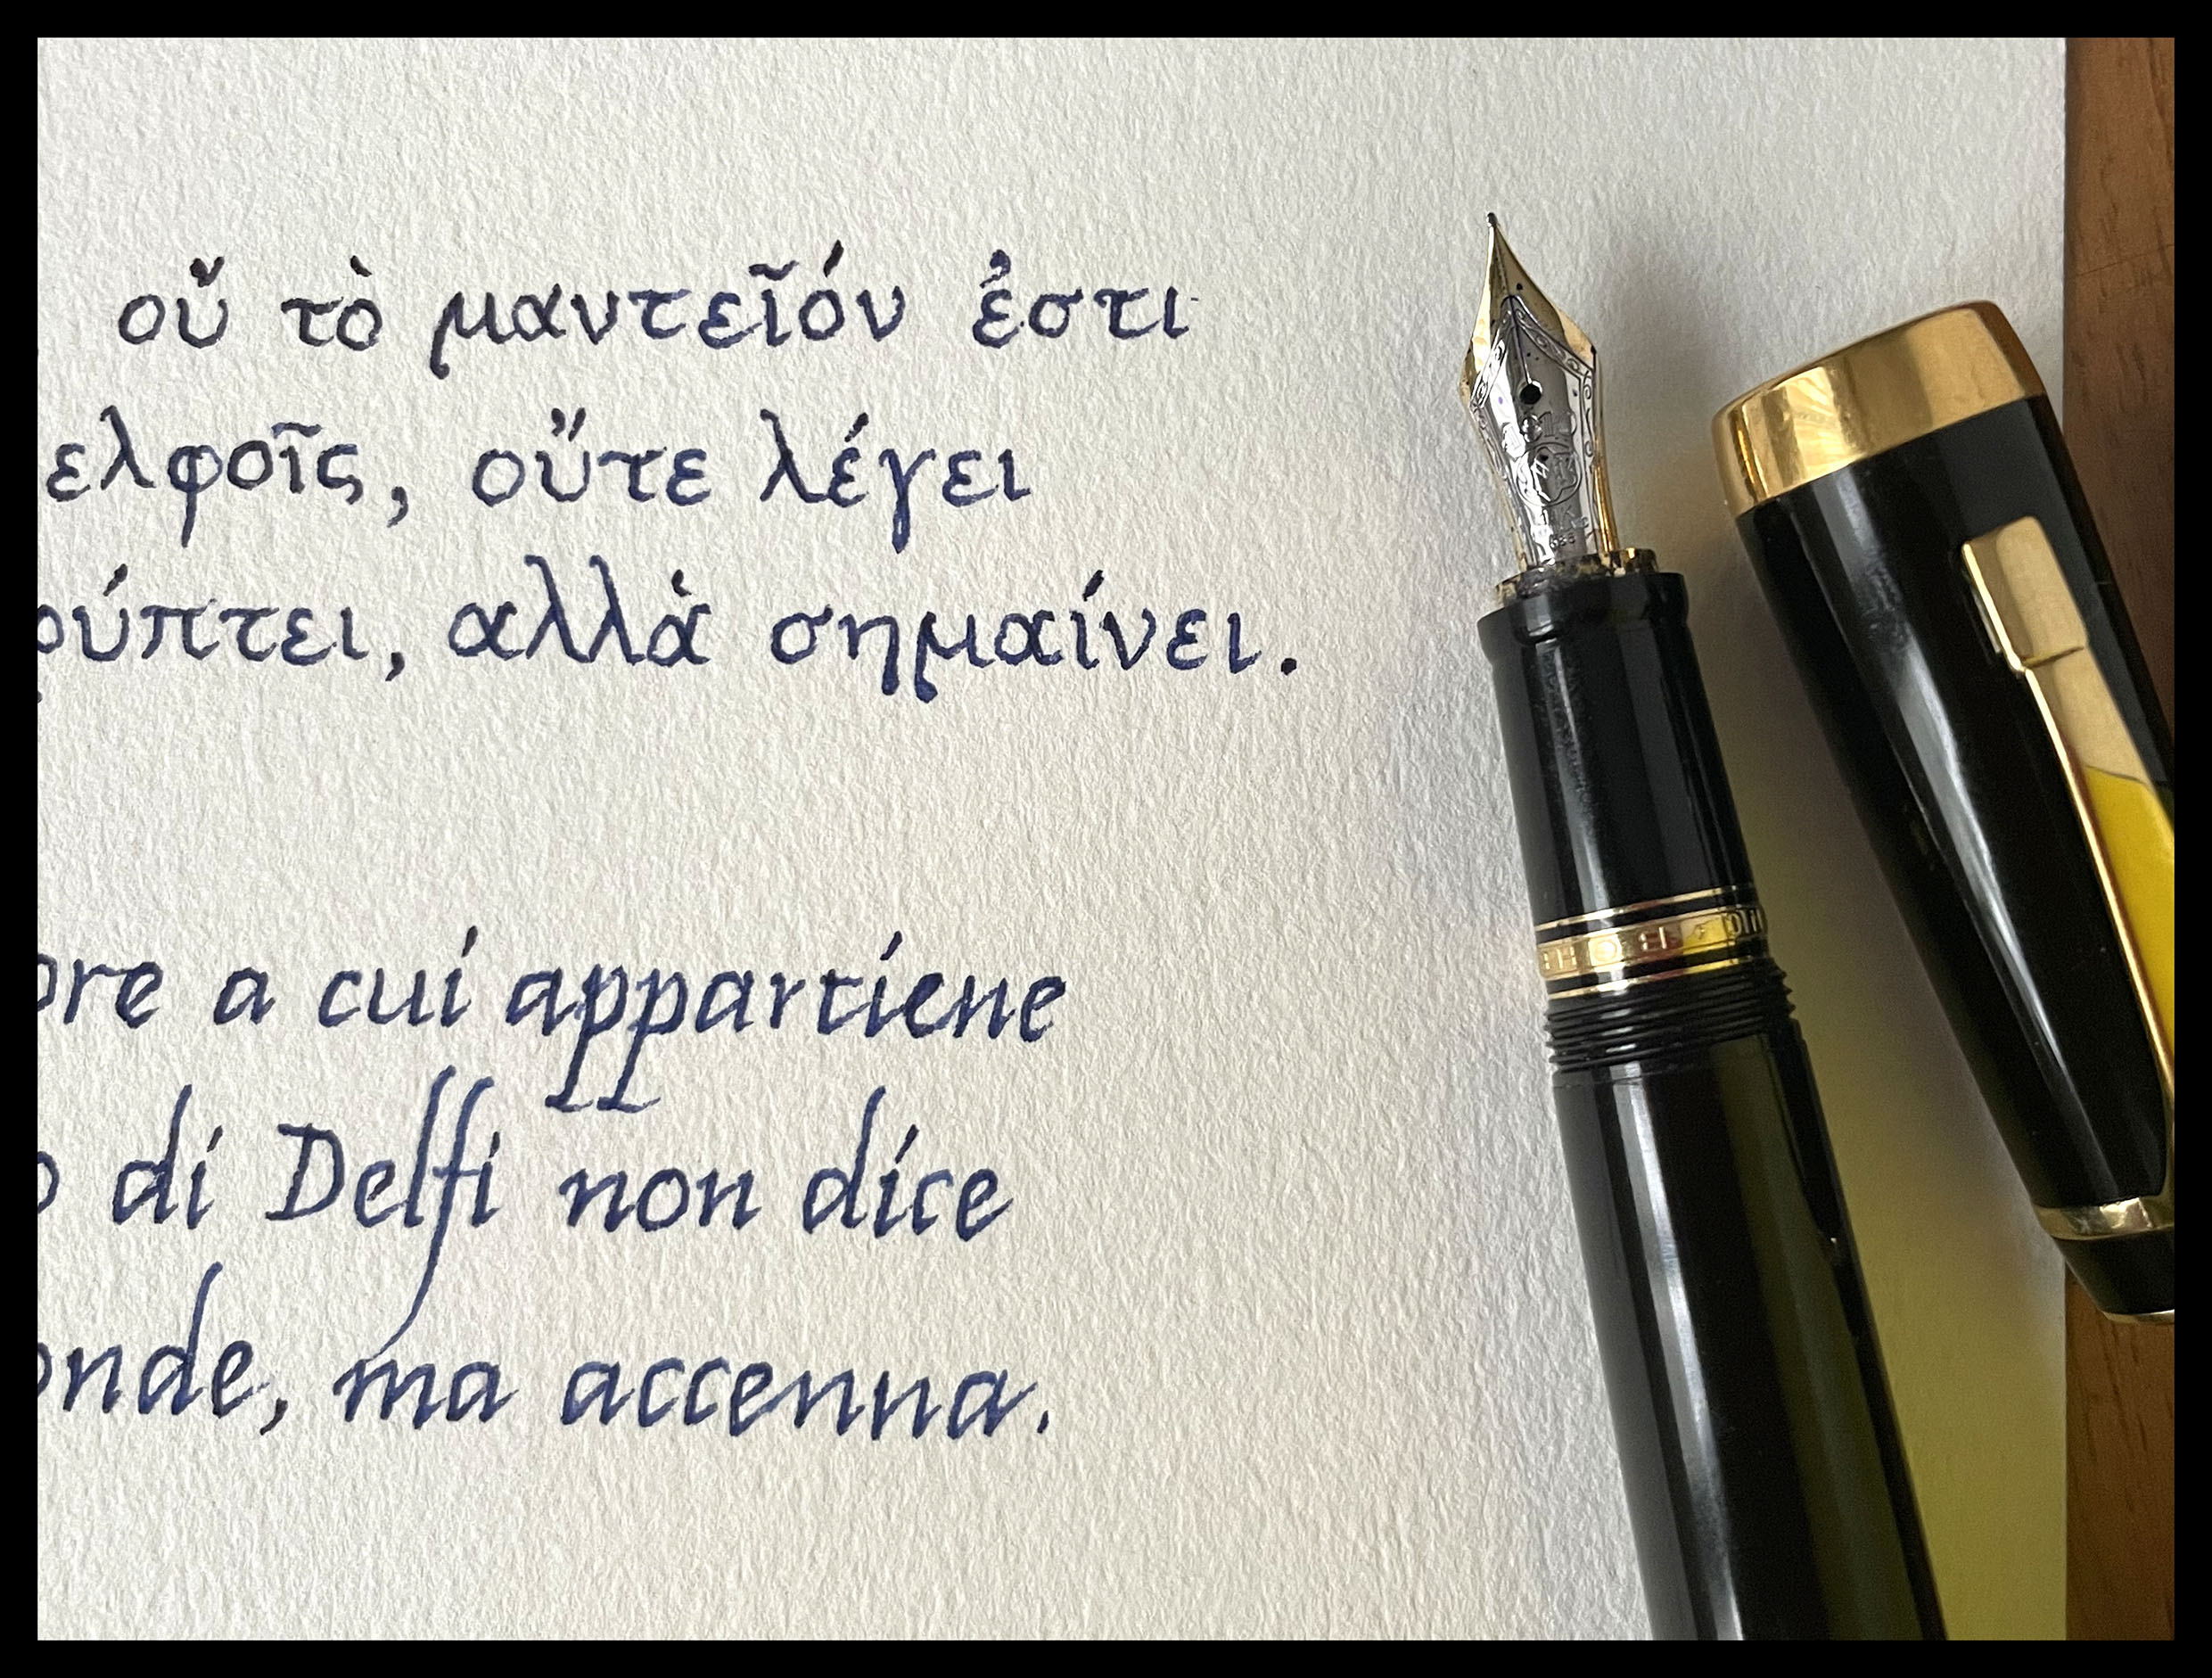 οὔ τὸ μαντεῖόν ἐστι
ελφοῖς, οὔτε λέγει
ρύπτει, αλλἀ σημαίνει.
ore a cui appartiene
o di Delfi non dice
onde, ma accenna.